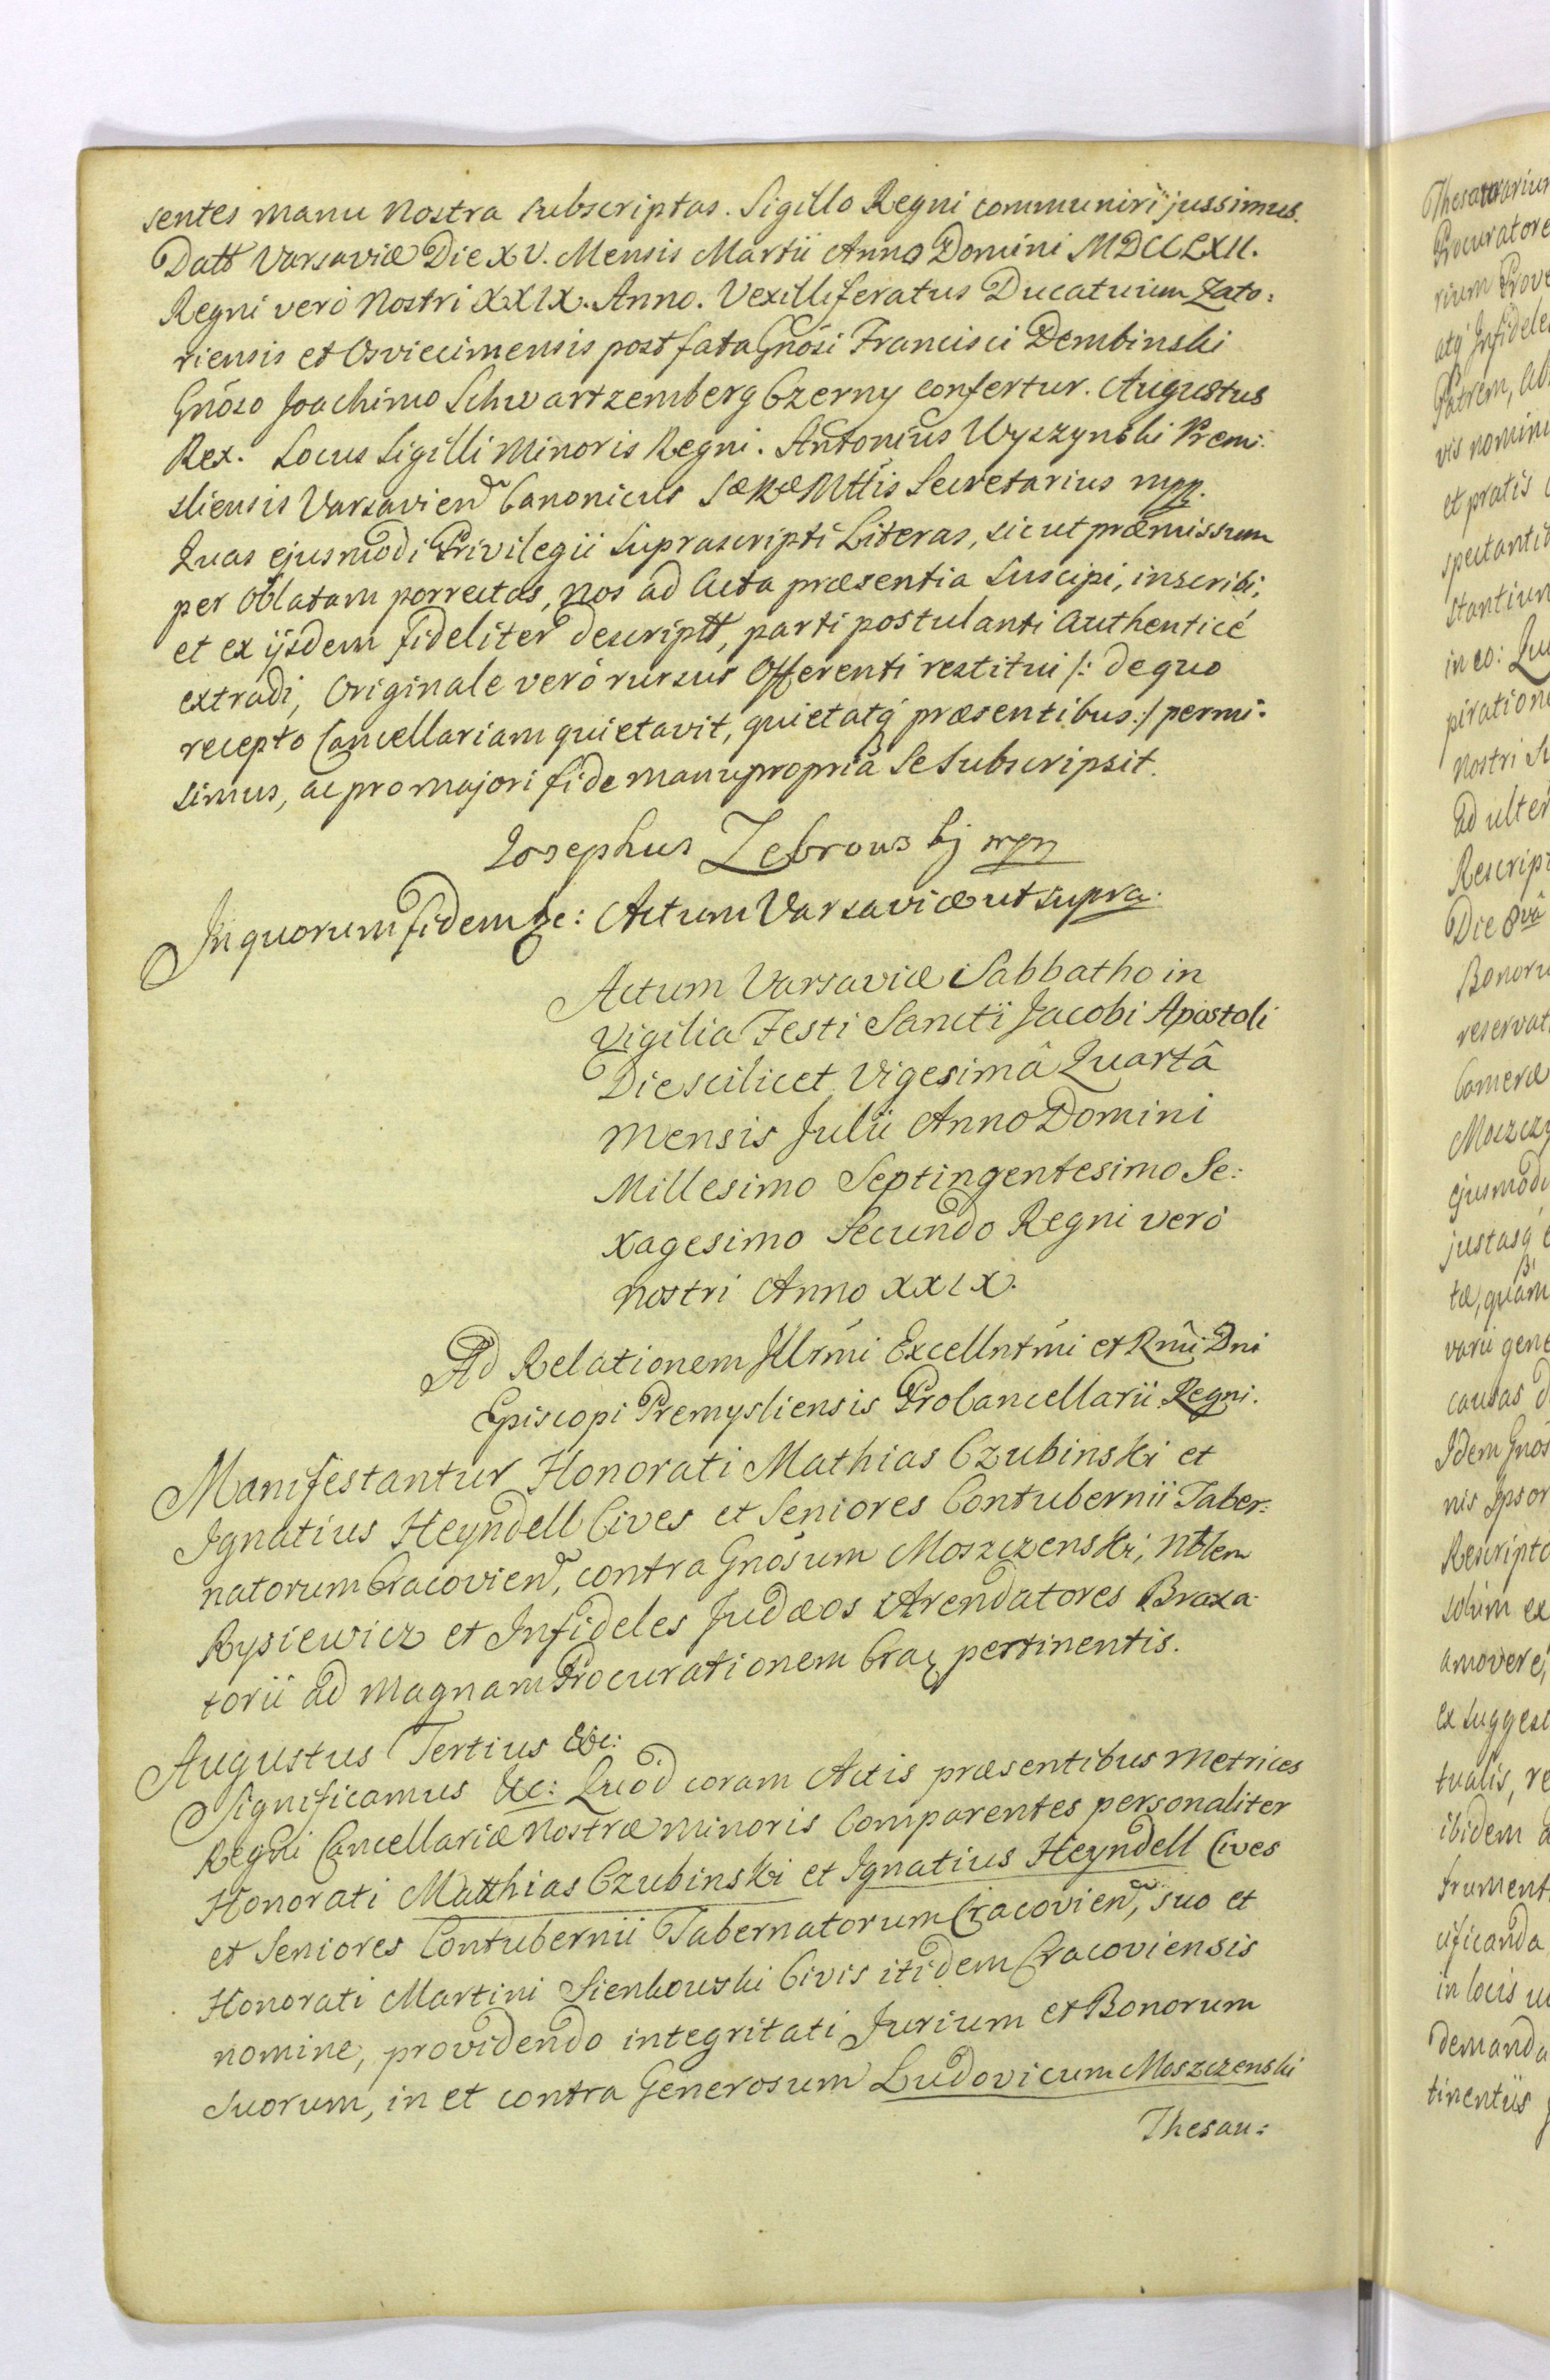 sentes manu Nostra subscriptas. Sigillo Regni communiri jussimus.
Datt Varsaviæ Die XV. Mensis Martii Anno Domini MDCCLXII.
Regni verò Nostri XXIX. Anno. Vexilliferatus Ducatuum Zato:
riensis et Osviecimensis post fata Gnõsi Francisci Dembinski
Gnõso Joachimo Schwartzemberg Czerny confertur. Augustus
Rex. Locus Sigilli Minoris Regni. Antonius Wyszynski Premi:
sliensis Varsavien Canonicus SæRæMttis Secretarius mpp.
Quas ejusmodi Privilegii Suprascripti Literas, sicut præmissum
per Oblatam porrectas, nos ad Acta præsentia Suscipi, inscribi,
et ex ijsdem fideliter descriptt, parti postulanti Authenticé
extradi, Originale verò rursus Offerenti restitui /: de quo
recepto Cancellariam quietavit, quietatq præsentibus :/ permi:
simus, ac pro majori fide manu propriâ Se Subscripsit.
Josephus Zebrowskj mpp
In quorum fidem &c: Actum Varsaviæ ut supra.
Actum Varsaviæ Sabbatho in
Vigilia Festi Sancti Jacobi Apostoli
Die scilicet Vigesimâ Quartâ
Mensis Julii Anno Domini
Millesimo Septingentesimo Se:
xagesimo Secundo Regni verò
Nostri Anno XXIX.
Ad Relationem Illrmi Excellntmi et Rmi Dni
Episcopi Premysliensis ProCancellarii Regni.
Manifestantur Honorati Mathias Czubinski et
Ignatius Heyndell Cives et Seniores Contubernii Taber:
natorum Cracovien, contra Gnosum Moszczenski, Nblem
Rysiewicz et Infideles Judæos Arendatores Braxa:
torii ad Magnam Procurationem Crac pertinentis.
Augustus Tertius &c:
Significamus &c: Quod coram Actis præsentibus Metrices
Regni Cancellariæ Nostræ Minoris Comparentes personaliter
Honorati Matthias Czubinski et Ignatius Heyndell Cives
et Seniores Contubernii Tabernatorum Cracovien, suo et
Honorati Martini Sienkowski Civis itidem Cracoviensis
nomine, providendo integritati Jurium et Bonorum
Suorum, in et contra Generosum Ludovicum Moszczenski
Thesau: